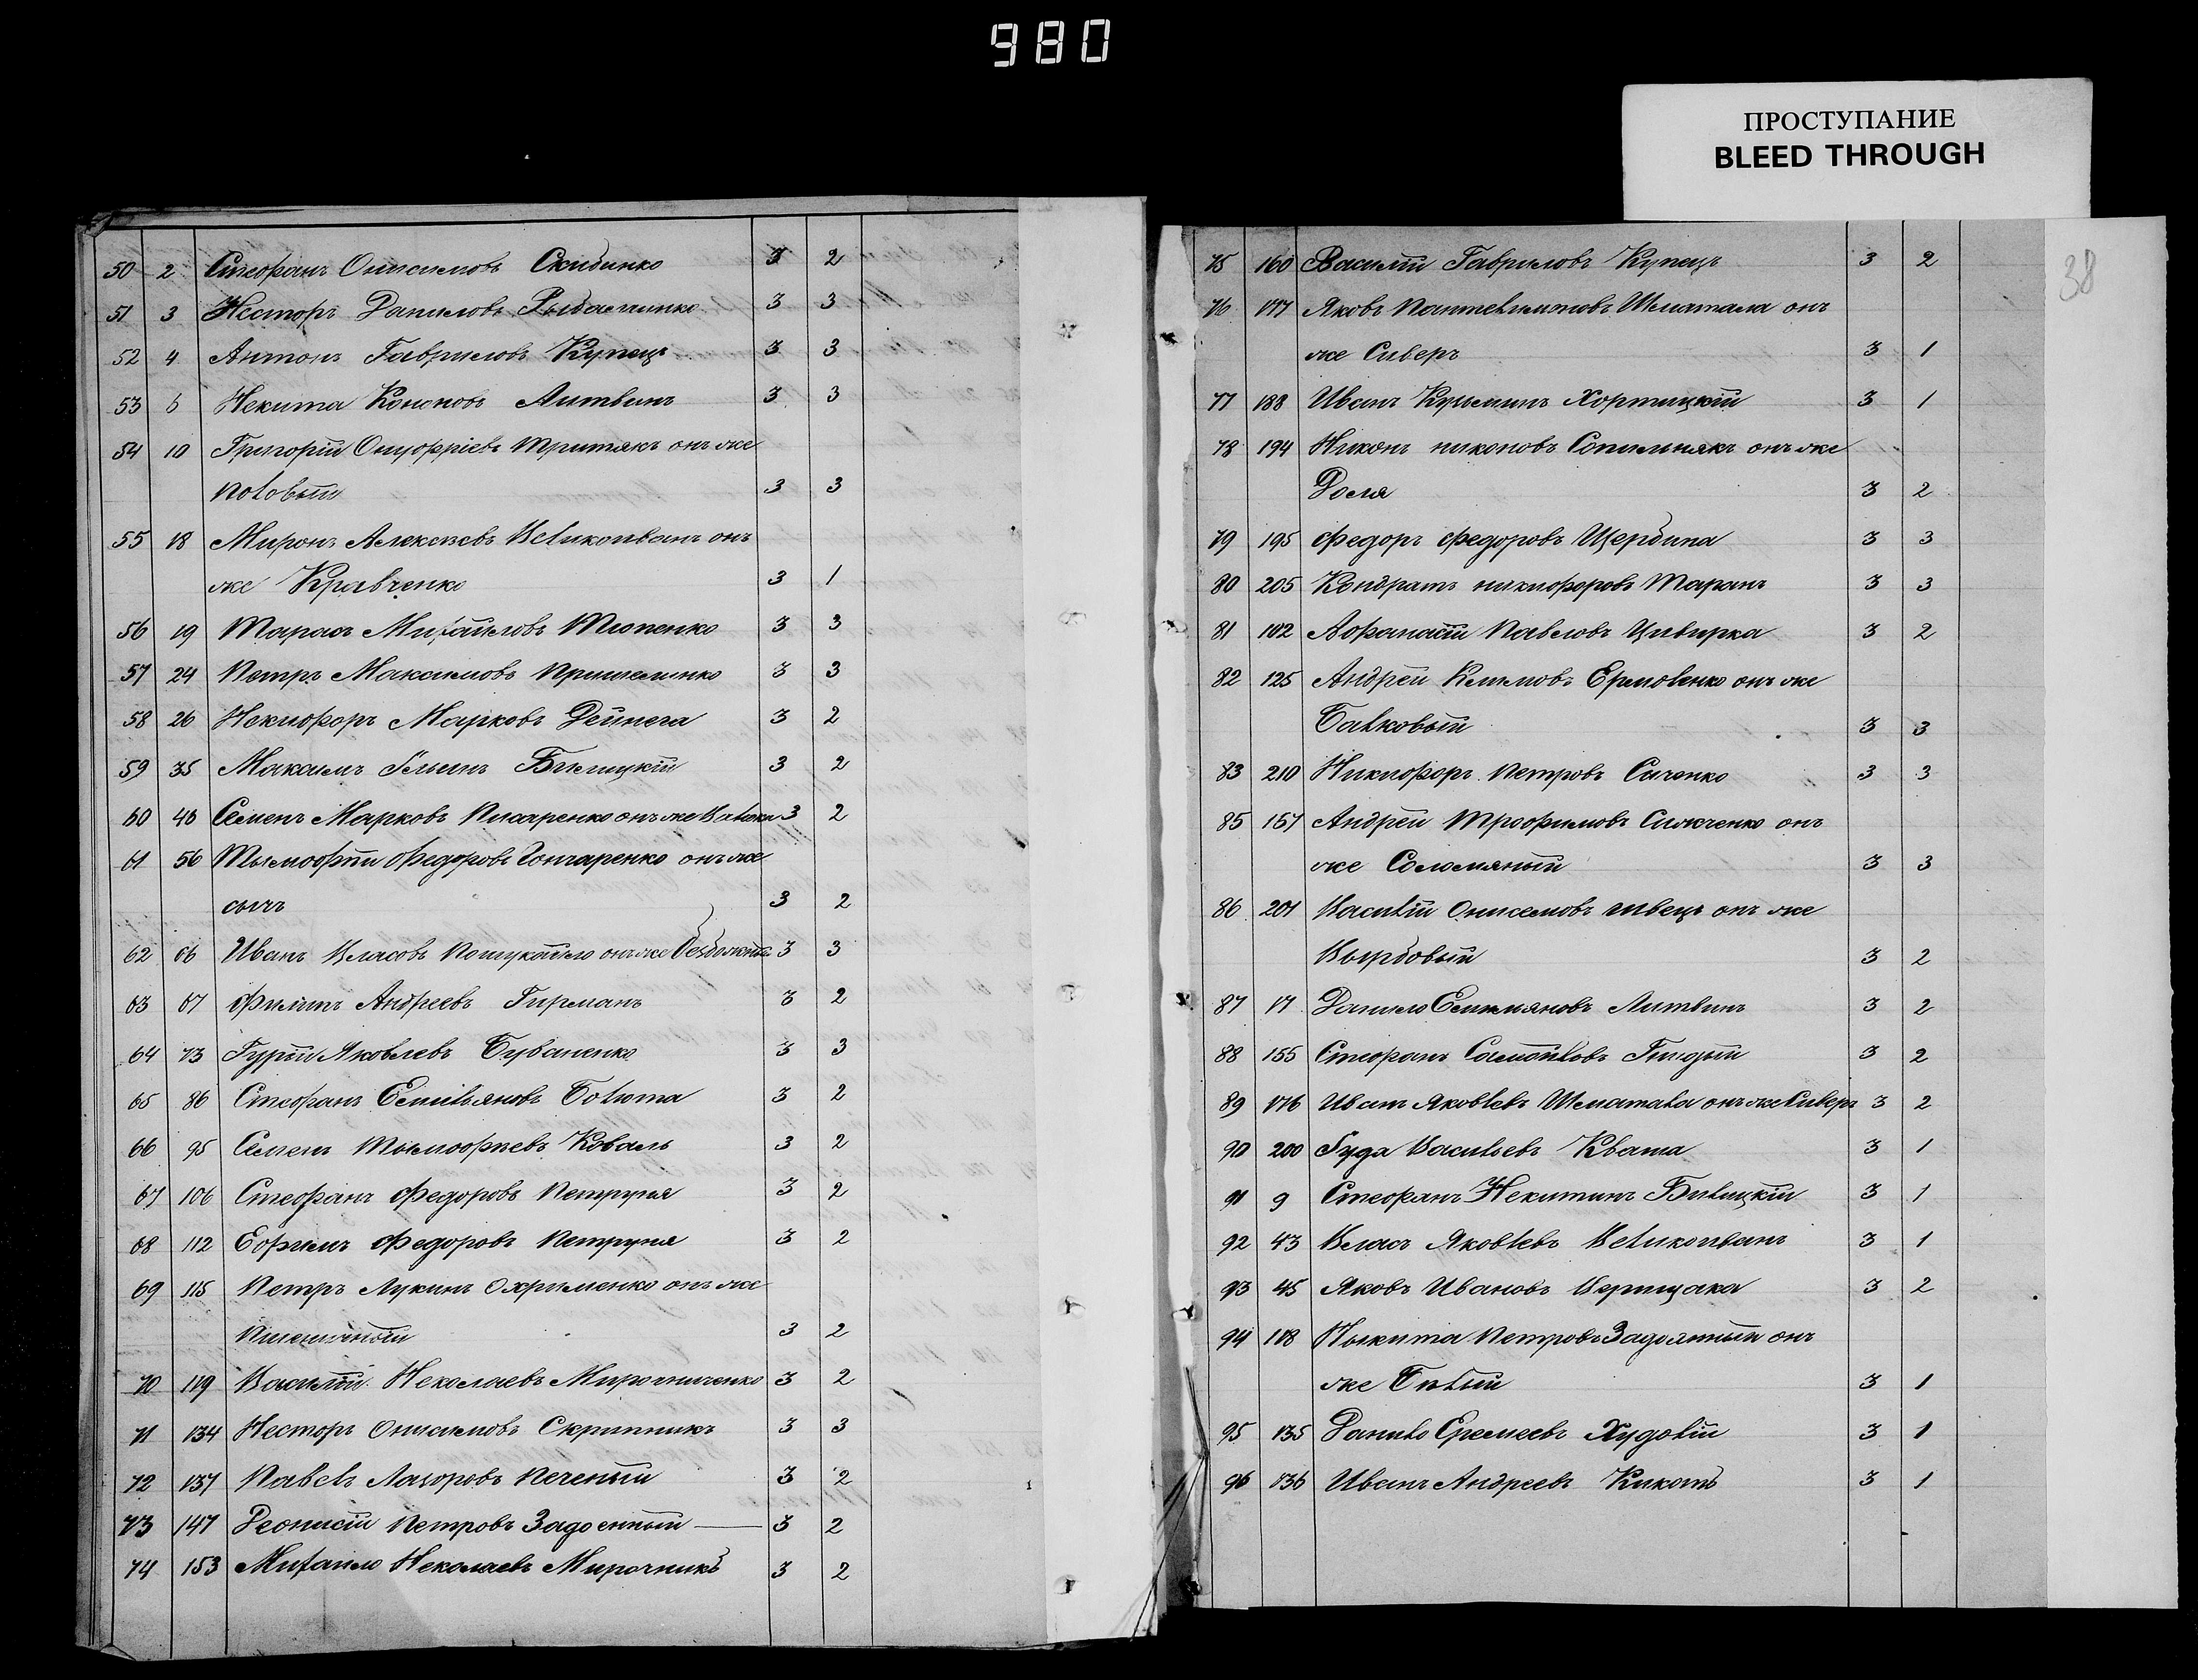 980
ПРОСТУПАНИЕ
BLEED THROUGH
38
50 2 Стефанъ Онисимовъ Скибинко 3 2
51 3 Несторъ Даниловъ Рыбалчинко 3 3
52 4 Антонъ Гавриловъ Купецъ 3 3
53 6 Некита Кононовъ Литвинъ 3 3
54 10 Григорій Онуфріевъ Тритякъ онъ же
Половый 3 3
55 18 Миронъ Алексѣевъ Великоиванъ онъ
же Кравченко 3 1
56 19 Тарасъ Михайловъ Тюпенко 3 3
57 24 Петръ Максимовъ 3 3
58 26 Некифоръ Марковъ Дейнега 3 2
59 35 Максимъ Ильинъ Билицкій 3 2
60 46 Семенъ Марковъ Писаренко онъ же 3 2
61 56 Тымофѣй Федоровъ Гончаренко онъ же
сычъ 3 2
62 66 Иванъ Власовъ онъ же 3 3
63 67 Филипъ Андреевъ Гирманъ 3 2
64 73 Гурій Яковлевъ Буваненко 3 3
65 86 Стефанъ Емильяновъ Болюта 3 2
66 95 Семенъ Тымофѣевъ Коваль 3 2
67 106 Стефанъ Федоровъ Петруня 3 2
68 112 Ефимъ Федоровъ Петруня 3 2
69 115 Петръ Лукинъ Охрименко онъ же
Пшеничный 3 2
70 119 Василій Неколаевъ Мирочниченко 3 2
71 134 Несторъ Онисимовъ Скрипникъ 3 3
72 137 Павелъ Лазоровъ Печеный 3 2
73 147 Деонисій Петровъ Задоенный 3 2
74 153 Михаило Неколаевъ Мирочникъ 3 2
75 160 Василій Гавриловъ Купецъ 3 2
76 177 Яковъ Пантелимоновъ Шматала онъ
же Сиверъ 3 1
77 188 Иванъ Кузьминъ Хортицкій 3 1
78 194 Никонъ никоновъ Сопильнякъ онъ же
Доля 3 2
79 195 Федоръ Федоровъ Щербина 3 3
80 205 Кондратъ никифоровъ Таранъ 3 3
81 102 Афанасій Павловъ Цивирка 3 2
82 125 Андрей Климовъ Ермоленко онъ же
Балковый 3 3
83 210 Никифоръ Петровъ Сиченко 3 3
85 157 Андрей Трофимовъ онъ
же Соломяный 3 3
86 201 Василій Онисемовъ швець онъ же
Вырбовый 3 2
87 17 Данило Емильяновъ Литвинъ 3 2
88 155 Стефанъ Самойловъ Гнидый 3 2
89 176 Иванъ Яковлевъ Шматала онъ же Сиверъ 3 2
90 200 Гуда Васильевъ Квата 3 1
91 9 Стефанъ Некитинъ Билицкій 3 1
92 43 Власъ Яковлевъ Великоиванъ 3 1
93 45 Яковъ Ивановъ Верещака 3 2
94 118 Ныкита Петровъ Задоянный онъ
же Билый 3 1
95 135 Данило Еремеевъ Худолій 3 1
96 136 Иванъ Андреевъ Кикоть 3 1